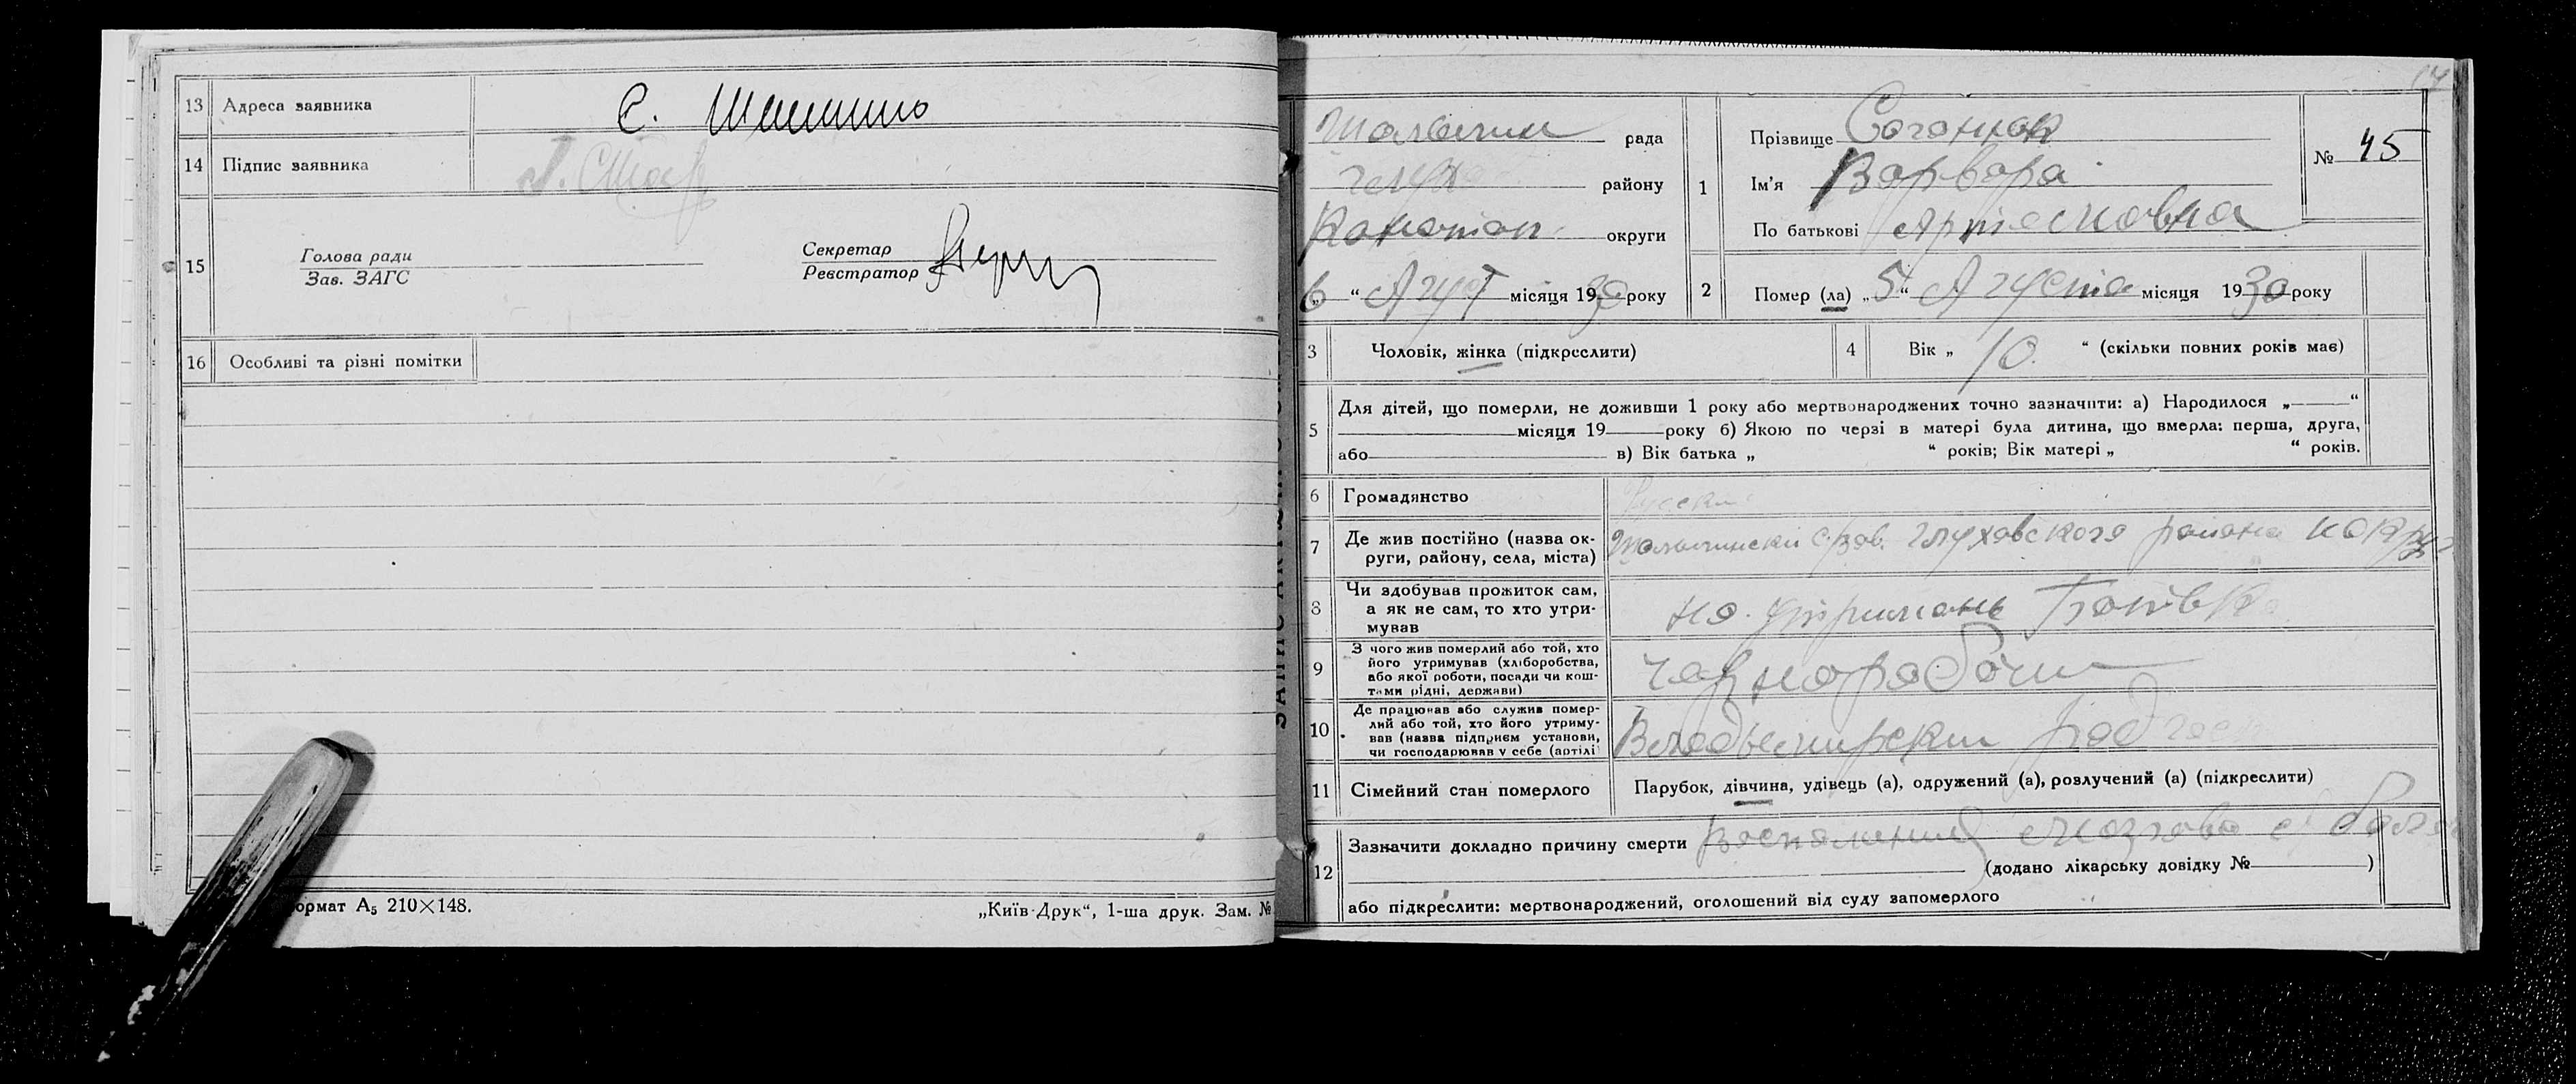 13 Адреса заявника С. Шалыгино
14 Підпис заявника
15 Голова ради
Зав. ЗАГС
Секретар
Реєстратор
16 Особливі та різні помітки
ормат А5 210×148.
„Київ-Друк“, 1-ша друк. Зам. №
рада
району
округи
6 “ Агуст місяця 1930 року
1 Прізвище
Ім'я Варвара
По батькові
№ 45
2 Помер (ла) „ 5 “ Агуста місяця 1930 року
3 Чоловік, жінка (підкреслити)
4 Вік „ 10. “ (скільки повних років має)
5 Для дітей, що померли, не доживши 1 року або мертвонароджених точно зазначити: а) Народилося „ “
місяця 19 року б) Якою по черзі в матері була дитина, що вмерла: перша, друга,
або в) Вік батька „ “ років; Вік матері „ “ років.
6 Громадянство Русски
7 Де жив постійно (назва ок-
руги, району, села, міста) Глуховского района
8 Чи здобував прожиток сам,
а як не сам, то хто утри-
мував
на утримань Батька
9 З чого жив померлий або той, хто
його утримував (хліборобства,
або якої роботи, посади чи кош-
тами рідні, держави)
чернорабочи
10 Де працював або служив помер-
лий або той, хто його утриму-
вав (назва підприєм установи,
чи господарював у себе (артілі)
11 Сімейний стан померлого Парубок, дівчина, удівець (а), одружений (а), розлучений (а) (підкреслити)
12 Зазначити докладно причину смерти
(додано лікарську довідку № )
або підкреслити: мертвонароджений, оголошений від суду запомерлого